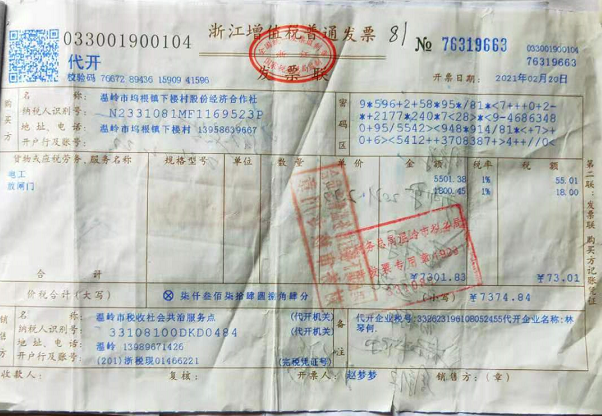 033001900104
浙江增值税普通发票
81
№ 76319663
033001900104
76319663
代开
发票联
校验码 76672 89436 15909 41596
开票日期: 2021年02月20日
购买方
名称: 温岭市坞根镇下楼村股份经济合作社
纳税人识别号: N2331081MF1169523P
地址、电话: 温岭市坞根镇下楼村 13958639667
开户行及账号:
密码区
9*596+2+58*95*/81*<7+++0+2-
*+2177*240*7<28>*<9-4686348
0+95/5542><948*914/81*<+7>+
0+6><5412++3708387+>4++//0<
货物或应税劳务、服务名称 规格型号 单位 数量 单价 金额 税率 税额
电工 5501.38 1% 55.01
放闸门 1800.45 1% 18.00
合计 ¥7301.83 ¥73.01
价税合计(大写) ⊗ 柒仟叁佰柒拾肆圆捌角肆分 (小写) ¥7374.84
第二联:发票联 购买方记账凭证
销售方
名称: 温岭市税收社会共治服务点 (代开机关)
纳税人识别号: 33108100DKD0484 (代开机关)
地址、电话: 温岭 13989671426
开户行及账号: (201)浙税现01466221 (完税凭证号)
备注
代开企业税号:332623196108052455代开企业名称:林
琴何.
收款人: 复核: 开票人: 赵梦梦 销售方:(章)
发票专用章